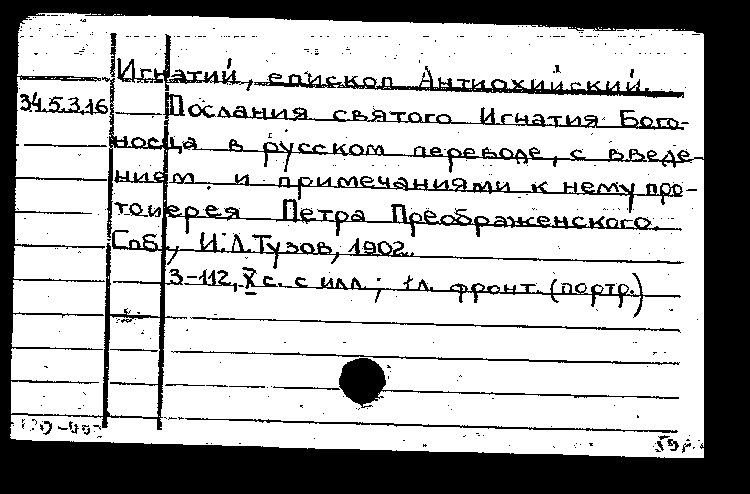 Игнатий, епископ Антиохийский.
34.5.3.16 Послания святого Игнатия Бого-
носца в русском переводе, с введе-
нием и примечаниями к нему про-
тоиерея Петра Преображенского.
Спб., И.Л.Тузов, 1902.
3-112, X с. с илл.; 1 л. фронт. (портр.)